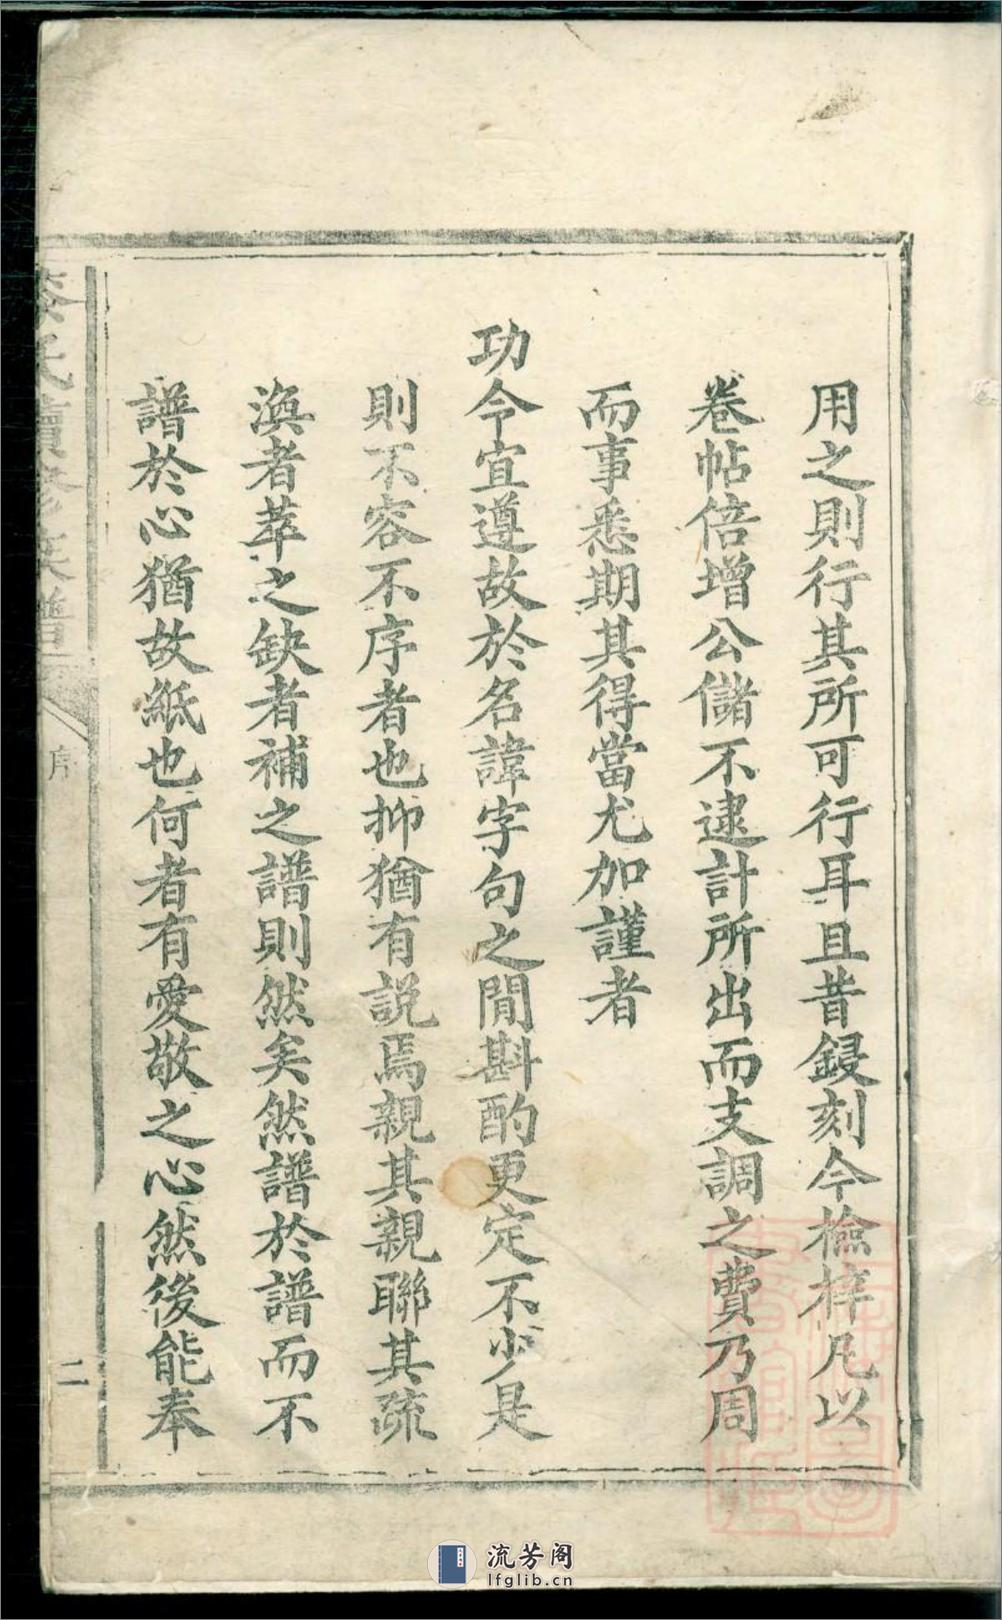 用之則行其所可行耳且昔鋟刻今檢梓凡以
卷帖倍增公儲不逮計所出而支調之費乃周
而事悉期其得當尤加謹者
功令宜遵故於名諱字句之閒斟酌更定不少是
則不容不序者也抑猶有説焉親其親聯其疏
渙者萃之缺者補之譜則然矣然譜於譜而不
譜於心猶故紙也何者有愛敬之心然後能奉
氏續修族譜
序
二
流芳阁
lfglib.cn